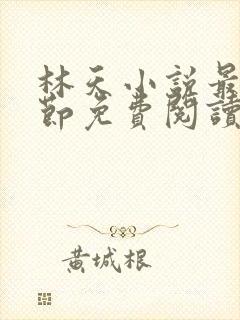 林天小說最
節免費閱讀
黃城根